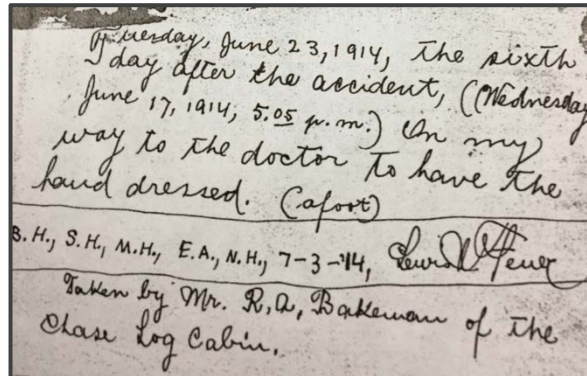 Tuesday, June 23, 1914, the sixth
day after the accident, (Wednesday
June 17, 1914, 5.05 p.m.) On my
way to the doctor to have the
hand dressed. (afoot)
B.H., S.H., M.H., E.A., N.H., 7-3-'14,
Taken by Mr. R.A. Bakeman of the
Chase Log Cabin.